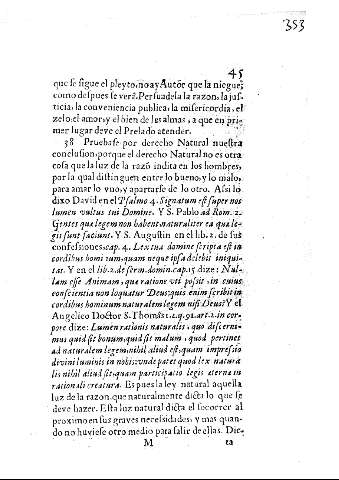 353
45
que se sigue el pleyto, no ay Autór que la niegue,
como despues se verá. Persuadela la razon, la jus-
ticia, la conveniencia publica, la misericordia, el
zelo, el amor, y el bien de las almas, a que en pri-
mer lugar deve el Prelado atender.
38 Pruebase por derecho Natural nuestra
conclusion, porque el derecho Natural no es otra
cosa que la luz de la razó indita en los hombres,
por la qual distinguen entre lo bueno, y lo malo,
para amar lo vno, y apartarse de lo otro. Assi lo
dixo David en el Psalmo 4. Signatum est super nos
lumen vultus tui Domine. Y S. Pablo ad Rom. 2.
Gentes quæ legem non habent naturaliter ea quæ le-
gis sunt faciunt. Y S. Augustin en el lib. 2. de sus
confessiones, cap. 4. Lex tua domine scripta est in
cordibus homi um, quam neque ipsa delebit iniqui-
tas. Y en el lib. 2. de serm. domin. cap. 15 dize: Nul-
lam esse Animam, quæ rations vti possit, in cuius
conscientia non loquatur Deus: quis enim scribit in
cordibus hominum naturalem legem nisi Deus? Y el
Angelico Doctor S. Thomas 1. 2. q. 91. art. 2. in cor-
pore dize: Lumen rationis naturalis, quo discerni-
mus quid sit bonum, quid sit malum, quod pertinet
ad naturalem legem, nihil aliud est, quam impressio
divini luminis in nobis: vnde patet quod lex natura
lis nihil aliud sit, quam participatio legis æterna in
rationali creatura. Es pues la ley natural aquella
luz de la razon, que naturalmente dicta lo que se
deve hazer. Esta luz natural dicta el socorrer al
proximo en sus graves necessidades, y mas quan-
do no huviesse otro medio para salir de ellas. Dic-
M ta